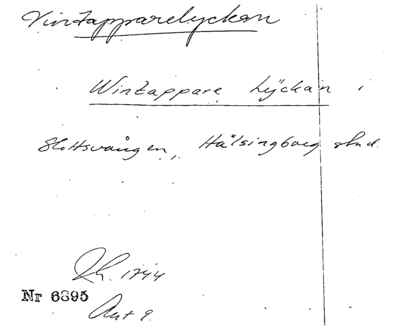 Vintapparelyckan
Wintappare Lyckan i
Slottsvången, Hälsingborg stad.
Lh. 1744
Nr 6695
Akt 9.